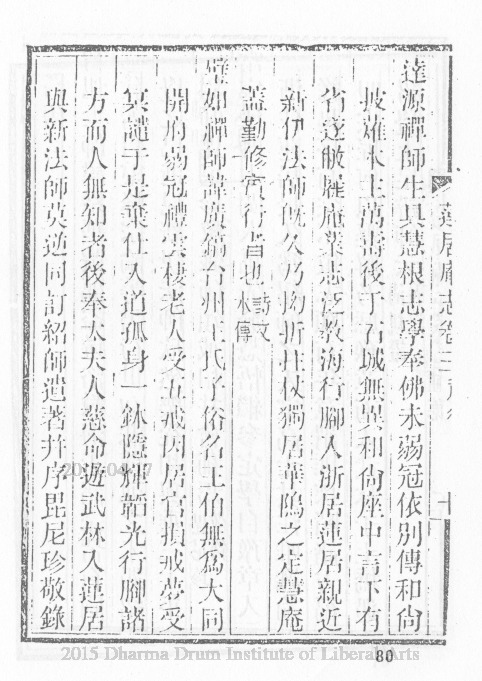 達源禪師生具慧根志學奉佛未弱冠依別傳和尚
披薙本主萬壽後于石城無異和尚座中言下有
省遂敝屣庵業志泛教海行腳入浙居蓮居親近
新伊法師既久乃拗折拄杖獨居華隖之定慧庵
蓋勤修實行者也詩文未傳
璧如禪師諱廣鎬台州王氏子俗名王伯無爲大同
開府弱冠禮雲棲老人受五戒因居官損戒夢受
冥譴于是棄仕入道孤身一鉢隱輝韜光行腳諸
方而人無知者後奉太夫人慈命遊武林入蓮居
與新法師莫逆同訂紹師遺著并序毘尼珍敬錄
蓮居庵志卷三
十
2015 Dharma Drum Institute of Liberal Arts
80